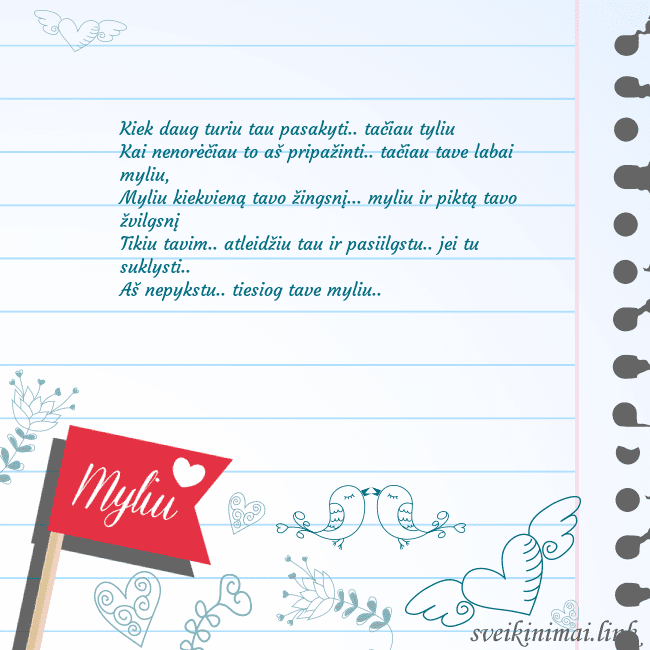 Kiek daug turiu tau pasakyti.. tačiau tyliu
Kai nenorėčiau to aš pripažinti.. tačiau tave labai
myliu,
Myliu kiekvieną tavo žingsnį... myliu ir piktą tavo
žvilgsnį
Tikiu tavim.. atleidžiu tau ir pasiilgstu.. jei tu
suklysti..
Aš nepykstu.. tiesiog tave myliu..
Myliu
sveikinimai.link